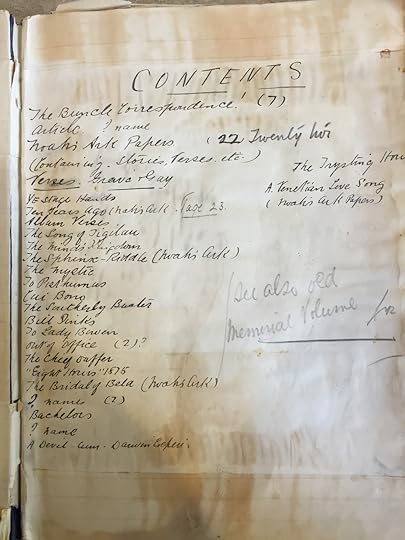 CONTENTS
The Buncle Correspondence! (7)
Article ? name
Noah's Ark Papers (22 Twenty two
(Containing - Stories, Verses, etc.)
Verses. Grave & Gay
Ye Stage Hands
Ten Years Ago (Noah's Ark. Page 23.
Album Verses
The Song of
The Mind's Kingdom
The Sphinx-Riddle (Noah's Ark)
The Mystic
To Posthumus
Cui Bono
The Baxter
Bill Jinks
To Lady Bowen
Out of Office (2)?
The Gaffer
"Eight Hours" 1875
The Bridal of Bela (Noah's Ark)
? names (2)
Bachelors
? name
A Devil-cum-Darwin
The Trysting
A Venetian Love Song
(Noah's Ark Papers)
See also old
Memorial Volume